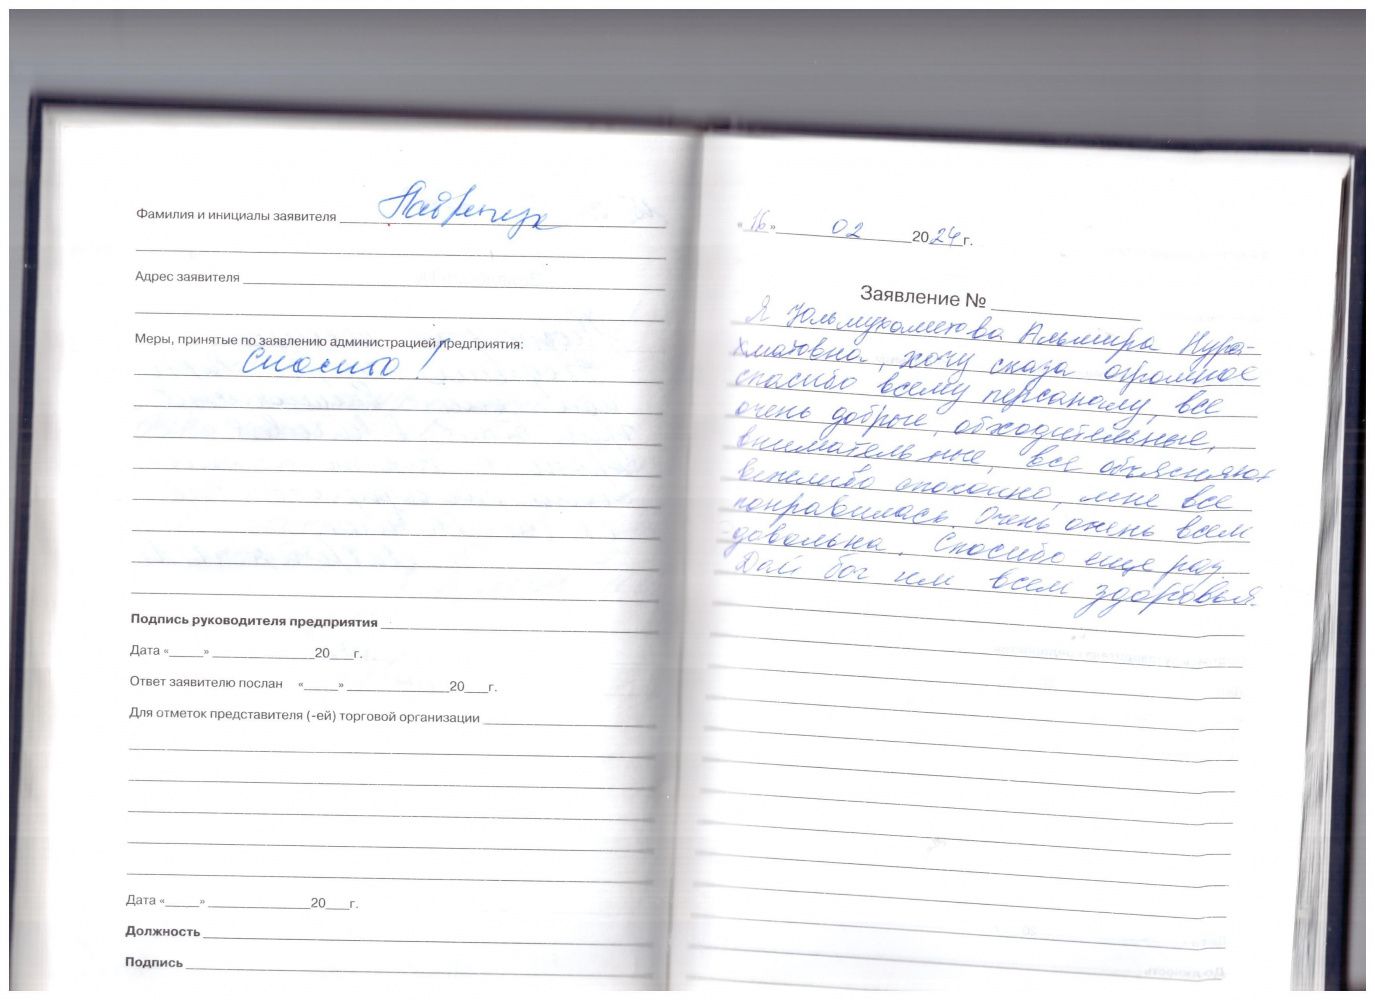 Фамилия и инициалы заявителя
Адрес заявителя
Меры, принятые по заявлению администрацией предприятия:
Спасибо!
Подпись руководителя предприятия
Дата «_____» _______________20___г.
Ответ заявителю послан «_____» _______________20___г.
Для отметок представителя (-ей) торговой организации
Дата «_____» _______________20___г.
Должность
Подпись
«16» 02 2024г.
Заявление №
Я Альмира Нура-
хматовна, хочу сказа огромное
спасибо всему персаналу, все
очень добрые, обходительные,
внимательные, все объясняют
вежливо спокойно, мне все
понравилась. Очень очень всем
довольна. Спасибо еще раз
Дай бог им всем здоровья.